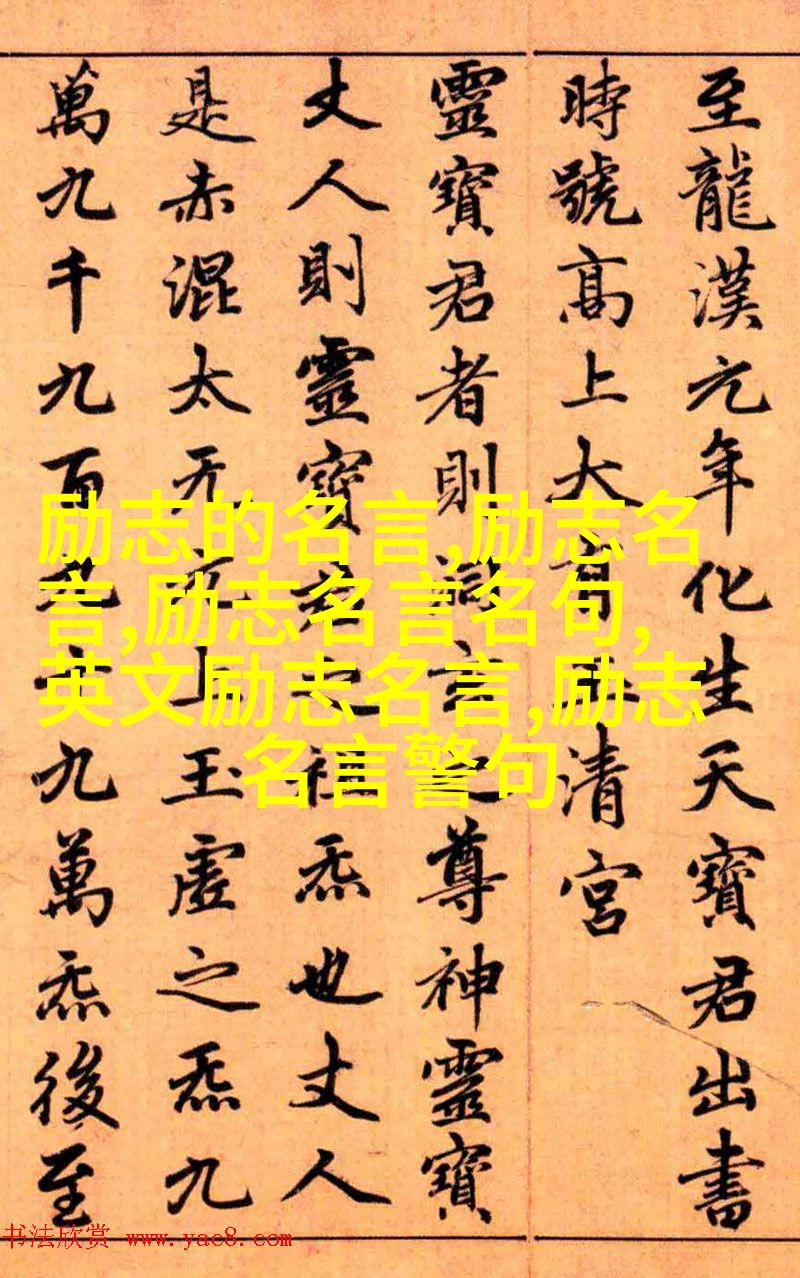 至龍漢元年化生天寶君出書
時號高上大有玉清宮
靈寶君者則洞玄之尊神靈寶
丈人則靈寶君之祖炁也丈人
是赤混太无元上玉虛之炁九
萬九千九百九十九萬炁後至
励志的名言,励志名
言,励志名言名句,
英文励志名言,励志
名言警句
书法欣赏 www.yac8.com